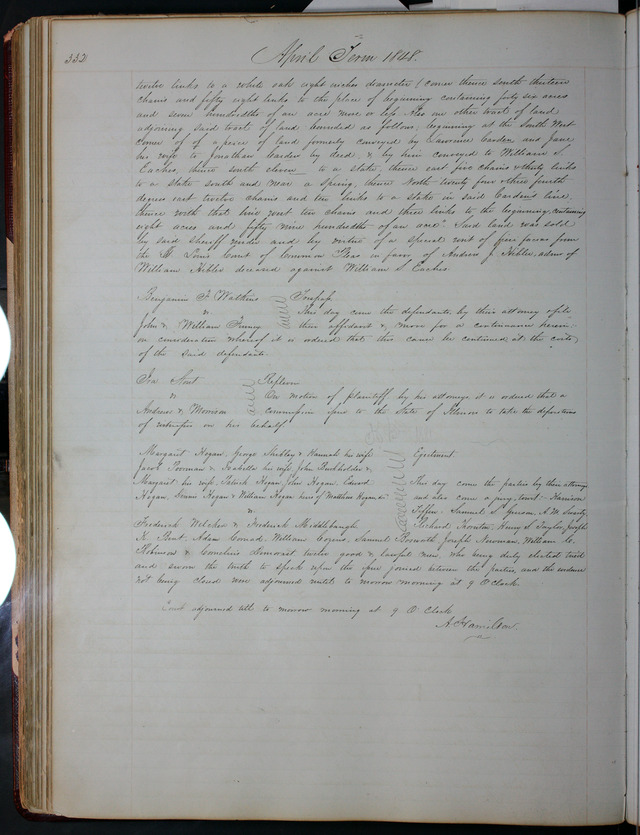 332
April Term 1848.
twelve links to a white oak eight inches diameter (corner thence south thirteen
chains and fifty eight links to the place of beginning containing forty six acres
and seven hundredths of an acre more or less. Also one other tract of land
adjoining said tract of land bounded as follows, beginning at the South West
corner of of a peace of land formerly conveyed by Lawrence Carden and Jane
his wife to Jonathan Carden by deed, & by him conveyed to William S
Eaches, thence south eleven to a stake, thence east five chains & thirty links
to a stake south and near a Spring, thence North twenty four & three fourth
degrees east twelve chains and ten links to a Stake in said Carden's line,
thence with that line west ten chains and three links to the beginning containing
eight acres and fifty nine hundredths of an acre. Said land was sold
by said Sheriff under and by virtue of a special writ of fieri facias from
the St. Louis Court of Common Pleas in favor of Andrew J. Hibler, admr of
William Hibler deceased against William S. Eaches.
Benjamin F. Watkins Trespass
vs This day come the defendants, by their attorney & file
John & William Finney their affidavit & move for a continuance herein.
on consideration whereof it is ordered that this cause be continued at the costs
of the said defendants
Ira Sent Replevin
vs On motion of plaintiff by his attorneys it is ordered that a
Andrews & Morrison commission issue to the State of Illinois to take the depositions
of witnesses on his behalf
Margaret Hogan, George & Hannah his wife Ejectment
Jacob Poorman & Isabella his wife, John Burkholder &
Margaret his wife, Patrick Hogan, John Hogan, Edward This day come the parties by their attorneys
Hogan, Dennis Hogan & William Hogan heirs of Matthew Hogan decd. and also come a jury, towit: Harrison
vs Samuel S. A. M.
Frederick Welcher & Frederick Middlebaugh Richard Henry S. Taylor, Joseph
K. Bent, Adam Conrad, William Cozens, Samuel Bosworth, Joseph Newman, William C.
Robinson & Cornelius twelve good & lawful men, who being duly elected tried
and sworn the truth to speak upon the issue joined between the parties, and the evidence
not being closed were adjourned until to morrow morning at 9 O'Clock
Court adjourned till to morrow morning at 9 O'Clock
A. Hamilton.